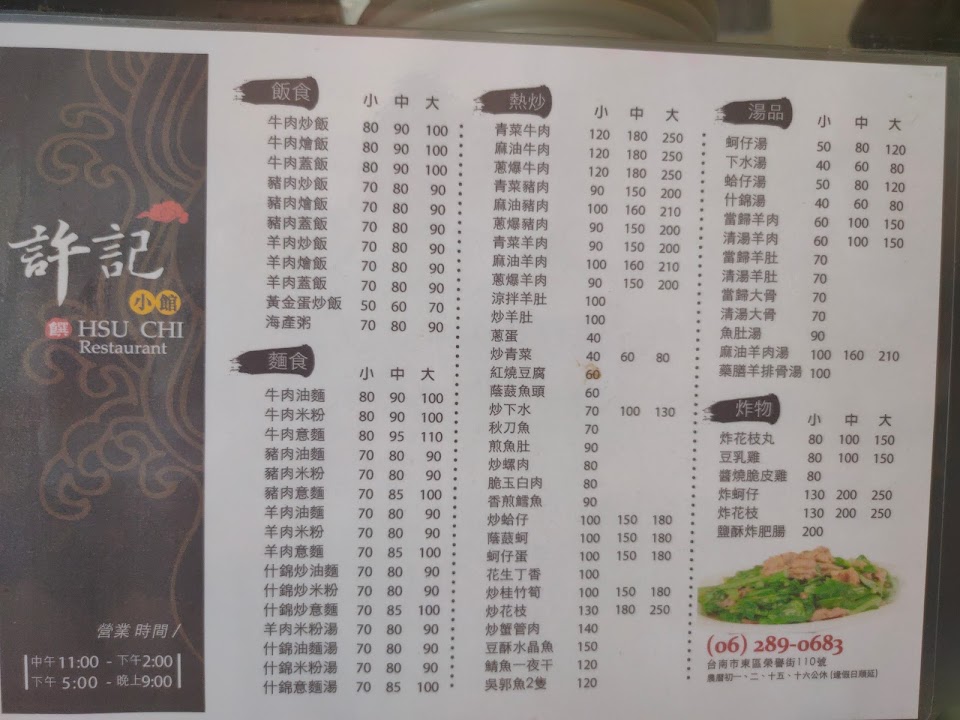 許記
小館
饌 HSU CHI
Restaurant
營業 時間 /
中午 11:00 - 下午2:00
下午 5:00 - 晚上9:00
飯食 小 中 大
牛肉炒飯 80 90 100
牛肉燴飯 80 90 100
牛肉蓋飯 80 90 100
豬肉炒飯 70 80 90
豬肉燴飯 70 80 90
豬肉蓋飯 70 80 90
羊肉炒飯 70 80 90
羊肉燴飯 70 80 90
羊肉蓋飯 70 80 90
黃金蛋炒飯 50 60 70
海產粥 70 80 90
麵食 小 中 大
牛肉油麵 80 90 100
牛肉米粉 80 90 100
牛肉意麵 80 95 110
豬肉油麵 70 80 90
豬肉米粉 70 80 90
豬肉意麵 70 85 100
羊肉油麵 70 80 90
羊肉米粉 70 80 90
羊肉意麵 70 85 100
什錦炒油麵 70 80 90
什錦炒米粉 70 80 90
什錦炒意麵 70 85 100
羊肉米粉湯 70 80 90
什錦油麵湯 70 80 90
什錦米粉湯 70 80 90
什錦意麵湯 70 85 100
熱炒 小 中 大
青菜牛肉 120 180 250
麻油牛肉 120 180 250
蔥爆牛肉 120 180 250
青菜豬肉 90 150 200
麻油豬肉 100 160 210
蔥爆豬肉 90 150 200
青菜羊肉 90 150 200
麻油羊肉 100 160 210
蔥爆羊肉 90 150 200
涼拌羊肚 100
炒羊肚 100
蔥蛋 40
炒青菜 40 60 80
紅燒豆腐 60
蔭菝魚頭 60
炒下水 70 100 130
秋刀魚 70
煎魚肚 90
炒螺肉 80
脆玉白肉 80
香煎鱈魚 90
炒蛤仔 100 150 180
蔭菝蚵 100 150 180
蚵仔蛋 100 150 180
花生丁香 100
炒桂竹筍 100 150 180
炒花枝 130 180 250
炒蟹管肉 140
豆酥水晶魚 150
鯖魚一夜干 120
吳郭魚2隻 120
湯品 小 中 大
蚵仔湯 50 80 120
下水湯 40 60 80
蛤仔湯 50 80 120
什錦湯 40 60 80
當歸羊肉 60 100 150
清湯羊肉 60 100 150
當歸羊肚 70
清湯羊肚 70
當歸大骨 70
清湯大骨 70
魚肚湯 90
麻油羊肉湯 100 160 210
藥膳羊排骨湯 100
炸物 小 中 大
炸花枝丸 80 100 150
豆乳雞 80 100 150
醬燒脆皮雞 80
炸蚵仔 130 200 250
炸花枝 130 200 250
鹽酥炸肥腸 200
(06) 289-0683
台南市東區榮譽街110號
農曆初一、二、十五、十六公休 (逢假日順延)